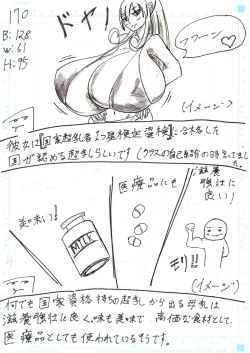 170
B:128
W:61
H:95
ドヤァ
フフーン
(イメージ)
彼女は『国家超乳者1つ星検定資格』に合格した
国が認める超乳らしいです(クラスの自己紹介の時言ってました。)
美味い!
MILK
医療品にも
滋養
強壮に
良い!
モリ!!
(イメージ)
何でも国家資格持ちの超乳から出る母乳は
滋養強壮に良く、味も美味で高価な食材として、
医療品としても使われているそうです。